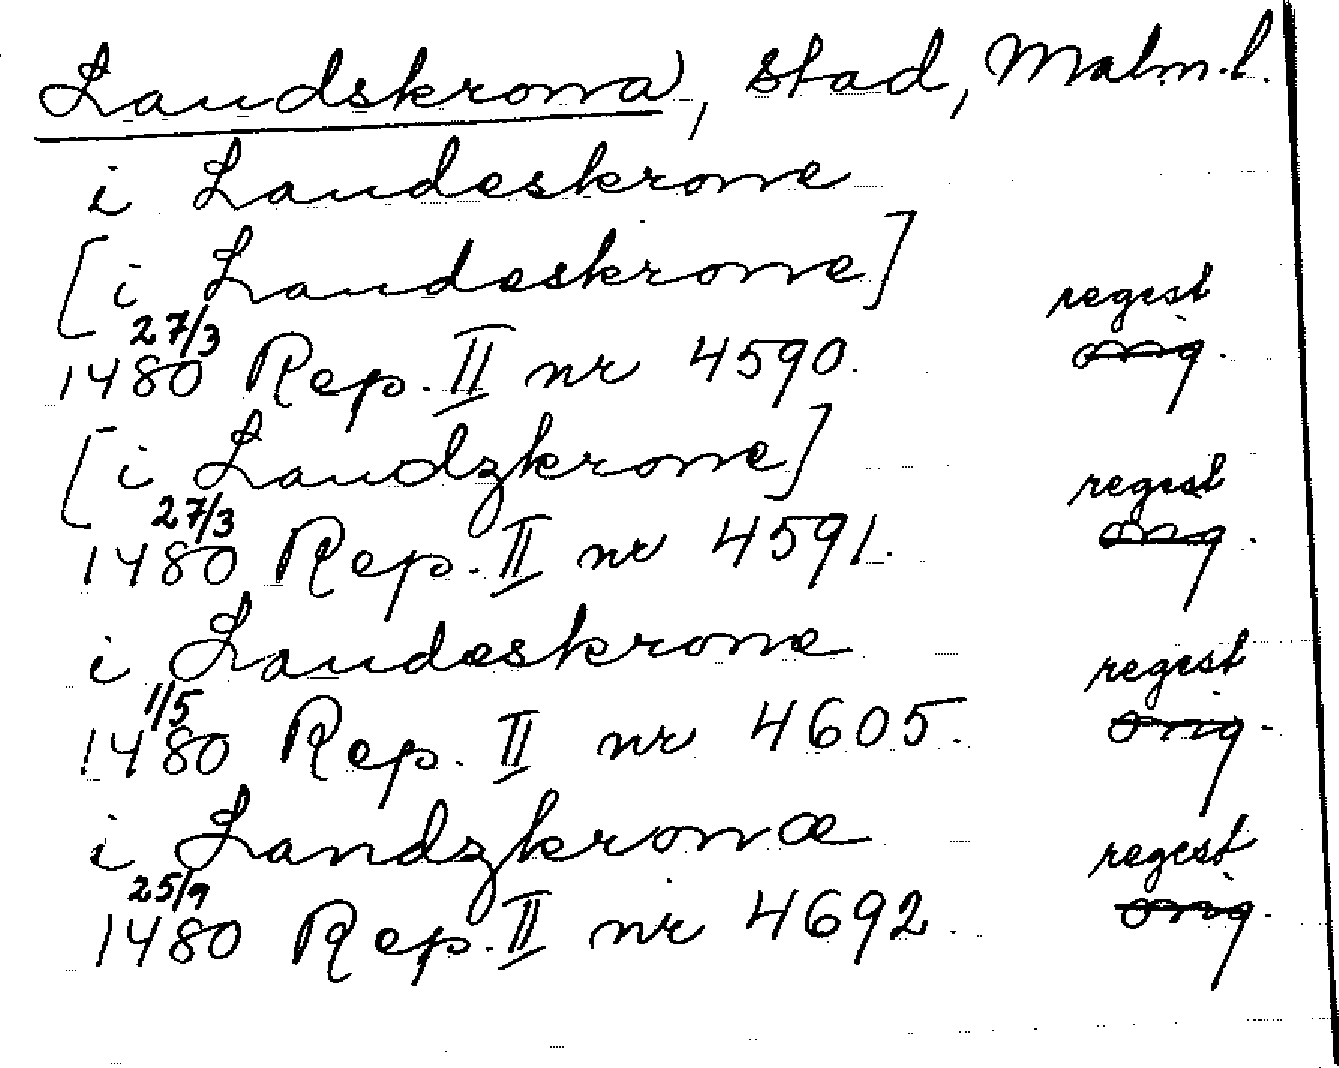 Landskrona, stad, Malm. l.
i Landeskrone
[i Landeskrone]
27/3 regest
1480 Rep. II nr 4590. orig.
[i Landzkrone]
27/3 regest
1480 Rep. II nr 4591. orig.
i Landeskrone
1/5 regest
1480 Rep. II nr 4605. orig.
i Landzkronæ
25/9 regest
1480 Rep. II nr 4692. orig.